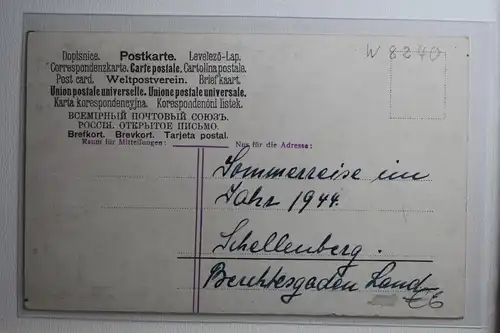 W 8240
Dopisnice. Postkarte. Levelező-Lap.
Correspondenzkarte. Carte postale. Cartolina postale.
Post card. Weltpostverein. Briefkaart.
Union postale universelle. Unione postale universale.
Karta korespondencyjna. Korespondenční lístek.
ВСЕМІРНЫЙ ПОЧТОВЫЙ СОЮЗЪ.
РОССІЯ. ОТКРЫТОЕ ПИСЬМО.
Brefkort. Brevkort. Tarjeta postal.
Raum für Mitteilungen: Nur für die Adresse:
Sommerreise im
Jahr 1944.
Schellenberg.
Berchtesgaden Land